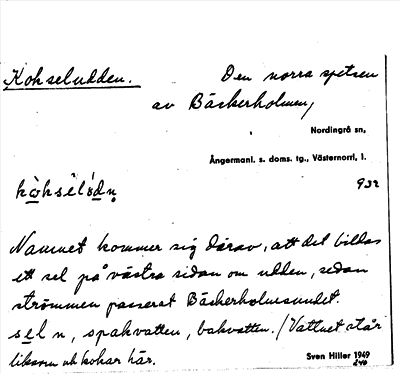 Kokseludden. Den norra spetsen
av Bäckerholmen,
Nordingrå sn,
Ångermanl. s. doms. tg., Västernorrl. l.
932
Namnet kommer sig därav, att det bildas
ett sel på västra sidan om udden, sedan
strömmen passerat Bäckerholmsundet.
sel n, spakvatten, bakvatten. / Vattnet står
liksom och kokar här.
Sven Hiller 1949